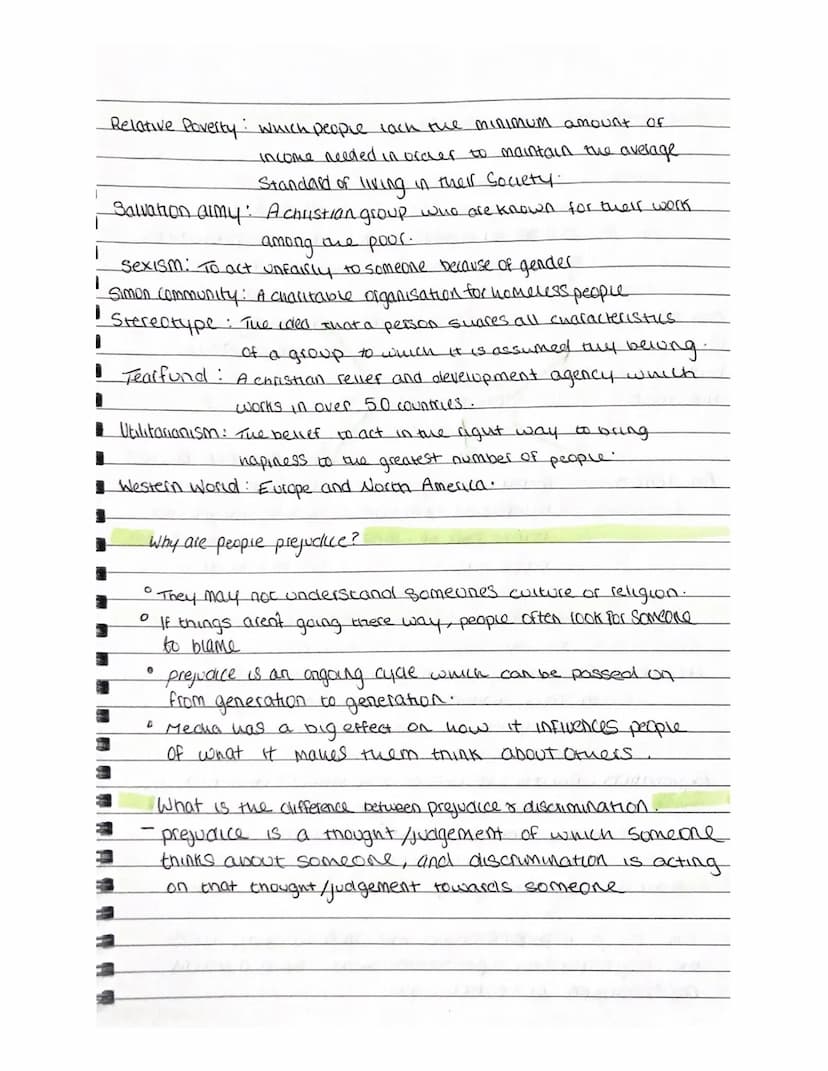 Relative Poverty: which people lack the minimum amount of
income needed in order to maintain the average
Standard of living in their Society.
Salvation army: A christian group who are known for their work
among the poor.
Sexism: To act unfairly to someone because of gender
Simon Community: A charitable organisation for homeless people
Stereotype: The idea that a person shares all characteristics
of a group to which it is assumed they belong.
Tearfund: A christian relief and development agency which
works in over 50 countries.
Utilitarianism: The belief to act in the right way to bring
hapiness to the greatest number of people.
Western World: Europe and North America.
Why are people prejudice?
° They may not understand someones culture or religion.
° If things aren't going there way, people often look for someone
to blame
° prejudice is an ongoing cycle which can be passed on
from generation to generation.
° Media has a big effect on how it influences people
of what it makes them think about others.
What is the difference between prejudice & discrimination.
- prejudice is a thought/judgement of which someone
thinks about someone, and discrimination is acting
on that thought/judgement towards someone